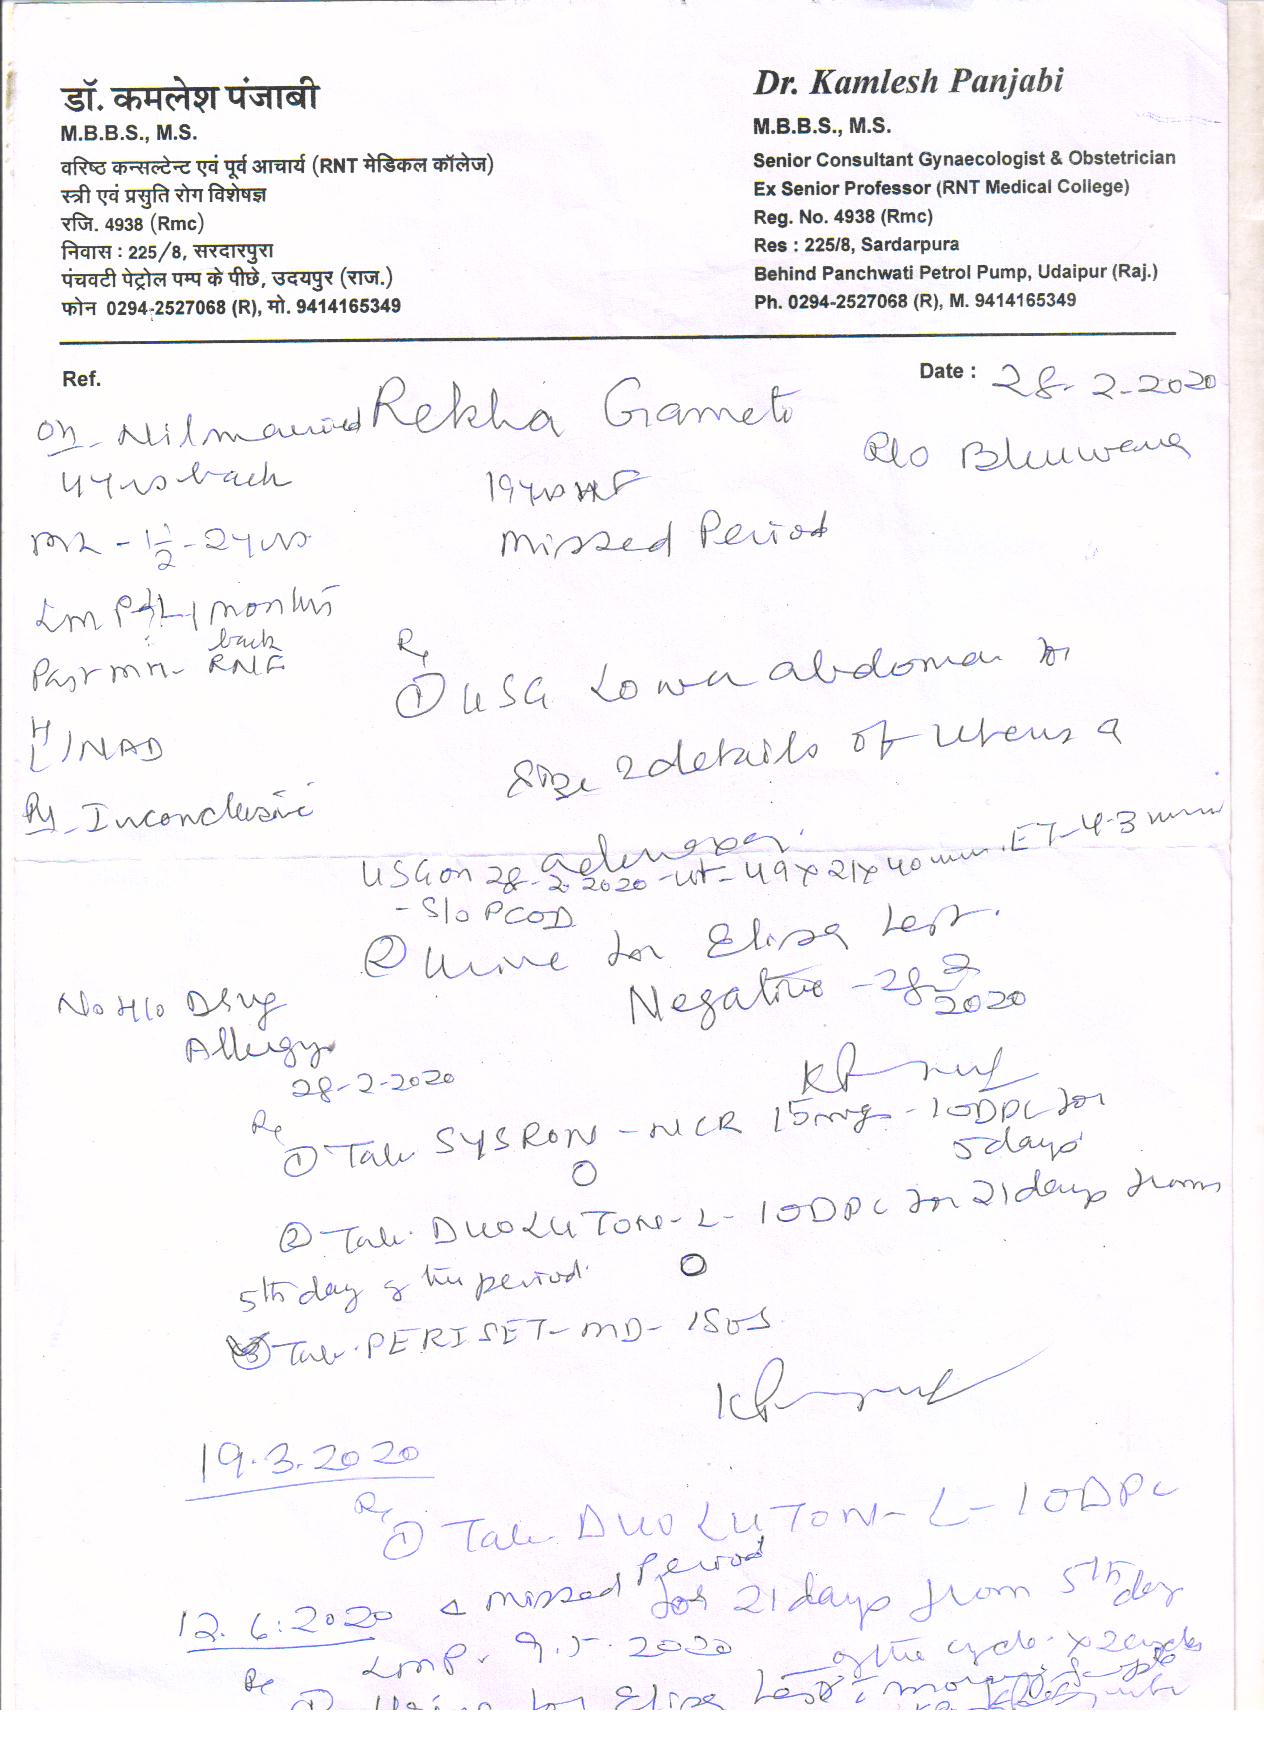 डॉ. कमलेश पंजाबी
M.B.B.S., M.S.
वरिष्ठ कन्सल्टेन्ट एवं पूर्व आचार्य (RNT मेडिकल कॉलेज)
स्त्री एवं प्रसुति रोग विशेषज्ञ
रजि. 4938 (Rmc)
निवास : 225/8, सरदारपुरा
पंचवटी पेट्रोल पम्प के पीछे, उदयपुर (राज.)
फोन 0294-2527068 (R), मो. 9414165349
Dr. Kamlesh Panjabi
M.B.B.S., M.S.
Senior Consultant Gynaecologist & Obstetrician
Ex Senior Professor (RNT Medical College)
Reg. No. 4938 (Rmc)
Res : 225/8, Sardarpura
Behind Panchwati Petrol Pump, Udaipur (Raj.)
Ph. 0294-2527068 (R), M. 9414165349
Ref.
Date : 28-2-2020
Rekha Gameti
R/o Bhuwana
19 yrs
Missed Period
O/H - Nil married
4 yrs back
- 1½ - 2 yrs
LMP - months
back
Past MH - RNF
H
L / NAD
PV - Inconclusive
Rx
① USG Lower abdomen for
size & details of uterus &
adnexa.
USG on 28-2-2020 - ut - 49 x 21 x 40 mm. ET - 4.3 mm
- S/o PCOD
② Urine for Elisa test.
Negative - 28-2-2020
No H/o Drug
Allergy
28-2-2020
Rx
① Tab SYSRON-NCR 15mg - 1 OD PC for
5 days
② Tab. DUOLUTON-L - 1 OD PC for 21 days from
5th day of the period.
③ Tab. PERISET-MD - 1 SOS
19.3.2020
Rx
① Tab DUOLUTON-L - 1 OD PC
for 21 days from 5th day
of the cycle x 2 cycles
12.6.2020 Missed Period
LMP. 9.5.2020
Rx
① Urine for Elisa test